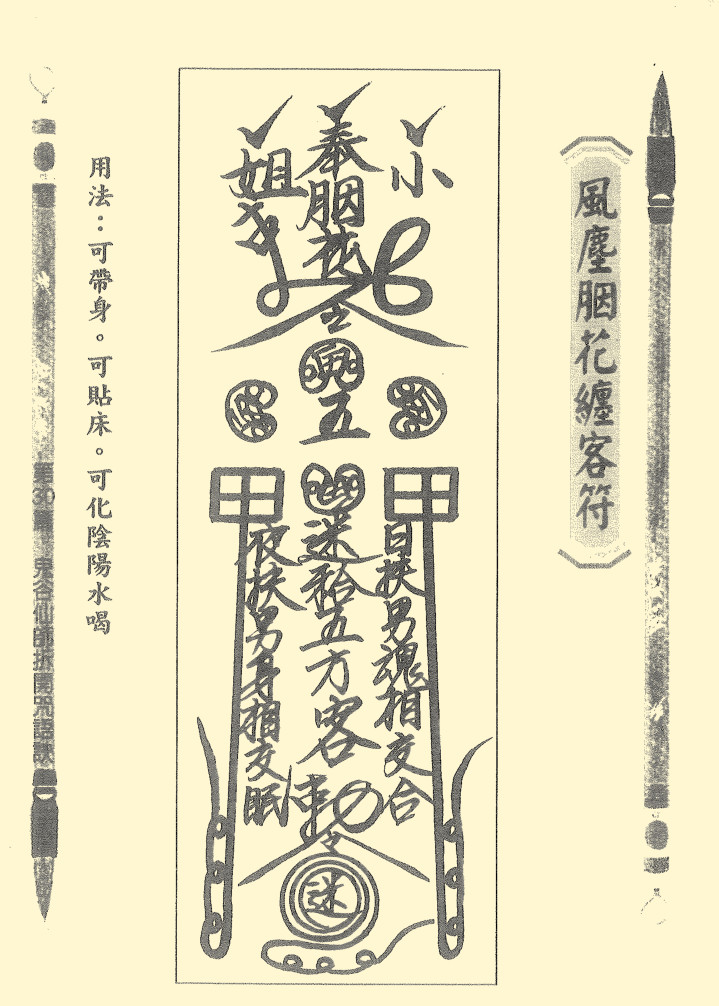 風塵胭花纏客符
小
奉胭花
姐
令
五
日扶男魂相交合
迷粉五方客
夜扶男身相交眠
迷
用法：可帶身。可貼床。可化陰陽水喝
第30
鬼谷仙師拆開咒語